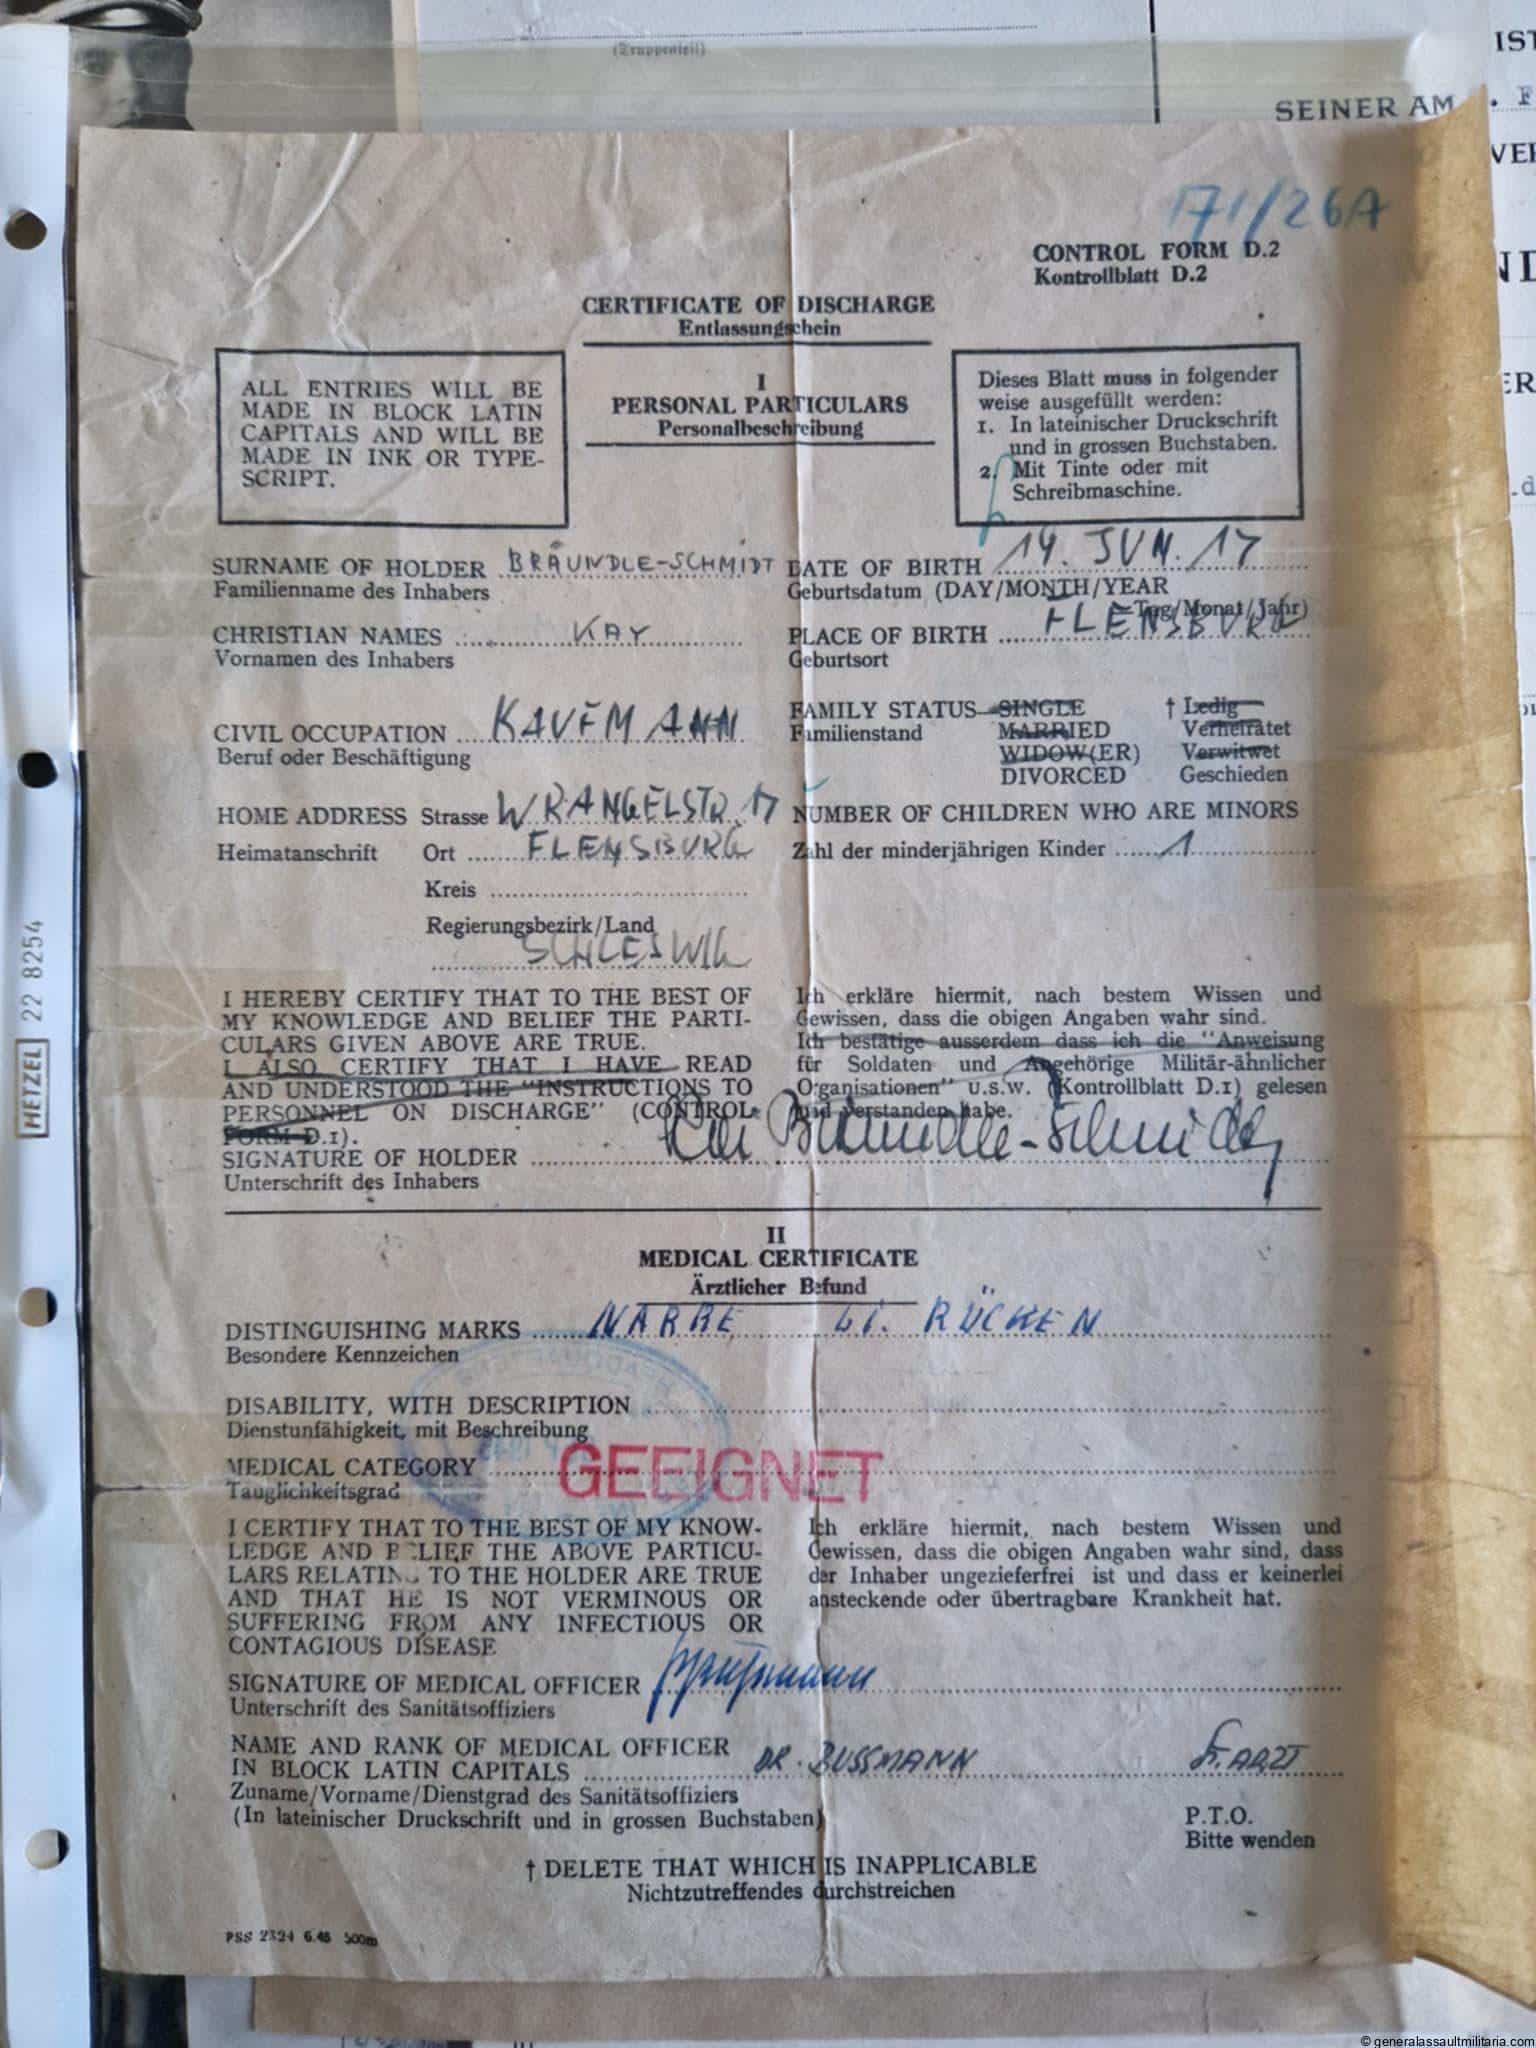 (Truppenteil)
SEINER AM
171/26A
CONTROL FORM D.2
Kontrollblatt D.2
CERTIFICATE OF DISCHARGE
Entlassungschein
I
PERSONAL PARTICULARS
Personalbeschreibung
ALL ENTRIES WILL BE
MADE IN BLOCK LATIN
CAPITALS AND WILL BE
MADE IN INK OR TYPE-
SCRIPT.
Dieses Blatt muss in folgender
weise ausgefüllt werden:
1. In lateinischer Druckschrift
und in grossen Buchstaben.
2. Mit Tinte oder mit
Schreibmaschine.
SURNAME OF HOLDER BRÄUNDLE-SCHMIDT
Familienname des Inhabers
DATE OF BIRTH 14. JUN. 17
Geburtsdatum (DAY/MONTH/YEAR
Tag/Monat/Jahr)
CHRISTIAN NAMES KAY
Vornamen des Inhabers
PLACE OF BIRTH FLENSBURG
Geburtsort
CIVIL OCCUPATION KAUFMANN
Beruf oder Beschäftigung
FAMILY STATUS SINGLE † Ledig
Familienstand MARRIED Verheiratet
WIDOW(ER) Verwitwet
DIVORCED Geschieden
HOME ADDRESS Strasse WRANGELSTR. 17
Heimatanschrift Ort FLENSBURG
Kreis
Regierungsbezirk/Land
SCHLESWIG
NUMBER OF CHILDREN WHO ARE MINORS
Zahl der minderjährigen Kinder 1
I HEREBY CERTIFY THAT TO THE BEST OF
MY KNOWLEDGE AND BELIEF THE PARTI-
CULARS GIVEN ABOVE ARE TRUE.
I ALSO CERTIFY THAT I HAVE READ
AND UNDERSTOOD THE "INSTRUCTIONS TO
PERSONNEL ON DISCHARGE" (CONTROL
FORM D.1).
Ich erkläre hiermit, nach bestem Wissen und
Gewissen, dass die obigen Angaben wahr sind.
Ich bestätige ausserdem dass ich die "Anweisung
für Soldaten und Angehörige Militär-ähnlicher
Organisationen" u.s.w. (Kontrollblatt D.1) gelesen
und verstanden habe.
SIGNATURE OF HOLDER Kay Bräundle-Schmidt
Unterschrift des Inhabers
II
MEDICAL CERTIFICATE
Ärztlicher Befund
DISTINGUISHING MARKS NARBE LI. RÜCKEN
Besondere Kennzeichen
DISABILITY, WITH DESCRIPTION
Dienstunfähigkeit, mit Beschreibung
MEDICAL CATEGORY GEEIGNET
Tauglichkeitsgrad
I CERTIFY THAT TO THE BEST OF MY KNOW-
LEDGE AND BELIEF THE ABOVE PARTICU-
LARS RELATING TO THE HOLDER ARE TRUE
AND THAT HE IS NOT VERMINOUS OR
SUFFERING FROM ANY INFECTIOUS OR
CONTAGIOUS DISEASE
Ich erkläre hiermit, nach bestem Wissen und
Gewissen, dass die obigen Angaben wahr sind, dass
der Inhaber ungezieferfrei ist und dass er keinerlei
ansteckende oder übertragbare Krankheit hat.
SIGNATURE OF MEDICAL OFFICER
Unterschrift des Sanitätsoffiziers
NAME AND RANK OF MEDICAL OFFICER
IN BLOCK LATIN CAPITALS DR. BUSSMANN St. ARZT
Zuname/Vorname/Dienstgrad des Sanitätsoffiziers
(In lateinischer Druckschrift und in grossen Buchstaben)
P.T.O.
Bitte wenden
† DELETE THAT WHICH IS INAPPLICABLE
Nichtzutreffendes durchstreichen
PSS 2324 6.45 500m
HETZEL 22 8254
© generalassaultmilitaria.com